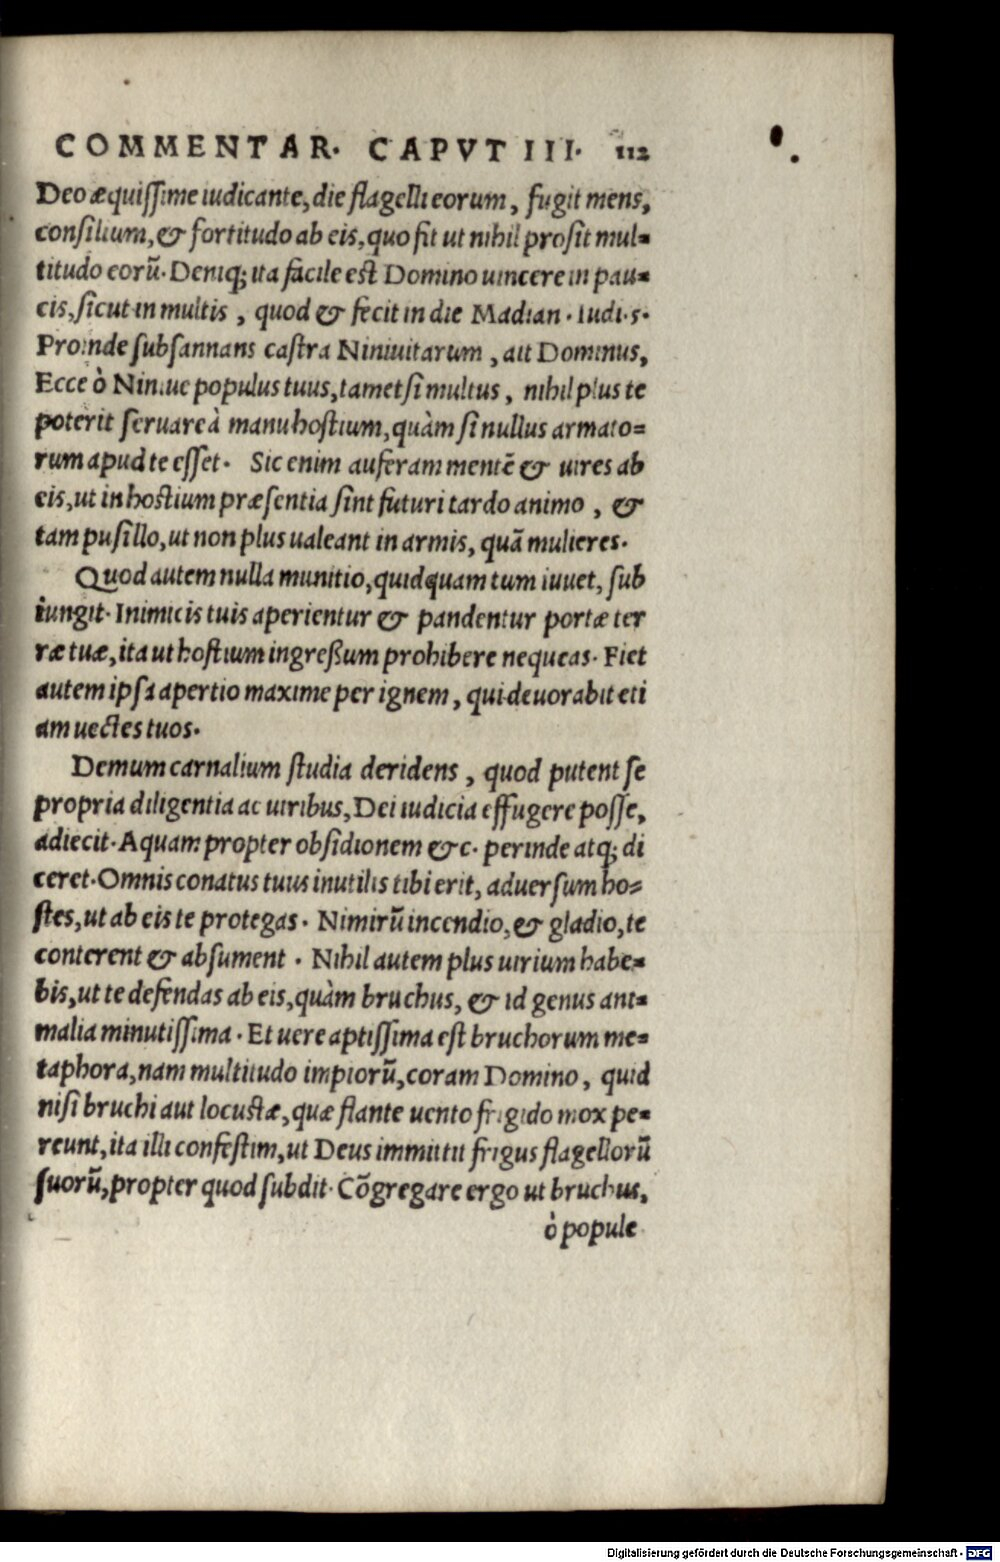 COMMENTAR. CAPVT III. 112
Deo æquißime iudicante, die flagelli eorum, fugit mens,
consilium, & fortitudo ab eis, quo fit ut nihil prosit mul-
titudo eorū. Deniq; ita facile est Domino uincere in pau-
cis, sicut in multis, quod & fecit in die Madian. Iudi.5.
Proinde subsannans castra Niniuitarum, ait Dominus,
Ecce ò Niniue populus tuus, tametsi multus, nihil plus te
poterit seruare à manu hostium, quàm si nullus armato-
rum apud te esset. Sic enim auferam mentē & uires ab
eis, ut in hostium præsentia sint futuri tardo animo, &
tam pusillo, ut non plus ualeant in armis, quā mulieres.
Quod autem nulla munitio, quidquam tum iuuet, sub
iungit. Inimicis tuis aperientur & pandentur portæ ter
ræ tuæ, ita ut hostium ingreßum prohibere nequeas. Fiet
autem ipsa apertio maxime per ignem, qui deuorabit eti
am uectes tuos.
Demum carnalium studia deridens, quod putent se
propria diligentia ac uiribus, Dei iudicia effugere posse,
adiecit. Aquam propter obsidionem &c. perinde atq; di
ceret. Omnis conatus tuus inutilis tibi erit, aduersum ho-
stes, ut ab eis te protegas. Nimirū incendio, & gladio, te
conterent & absument. Nihil autem plus uirium habe-
bis, ut te defendas ab eis, quàm bruchus, & id genus ani-
malia minutissima. Et uere aptissima est bruchorum me-
taphora, nam multitudo impiorū, coram Domino, quid
nisi bruchi aut locustæ, quæ flante uento frigido mox pe-
reunt, ita illi confestim, ut Deus immittit frigus flagellorū
suorū, propter quod subdit. Cōgregare ergo ut bruchus,
ò popule
Digitalisierung gefördert durch die Deutsche Forschungsgemeinschaft - DFG